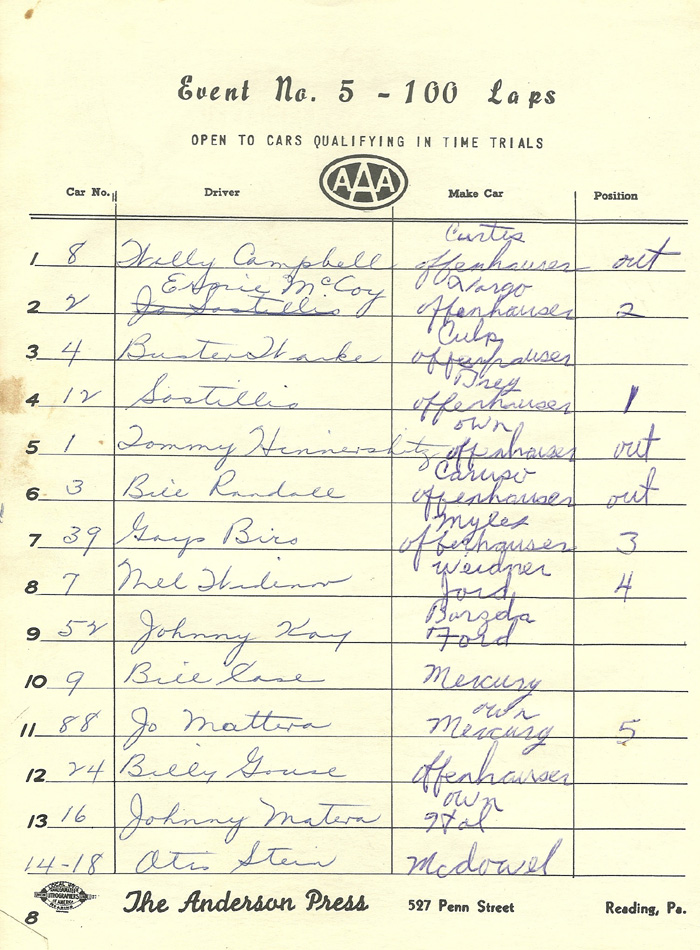 Event No. 5 - 100 Laps
OPEN TO CARS QUALIFYING IN TIME TRIALS
AAA
Car No. Driver Make Car Position
Curtis
1 8 Wally Campbell offenhauser out
Espie McCoy Vargo
2 2 Jo Sostillio offenhauser 2
Culp
3 4 Buster Warke offenhauser
Frey
4 12 Sostillio offenhauser 1
own
5 1 Tommy Hinnershitz offenhauser out
Caruso
6 3 Bill Randall offenhauser out
Myles
7 39 Gays Biro offenhauser 3
Weidner
8 7 Mel Widinor Ford 4
Barzda
9 52 Johnny Kay Ford
10 9 Bill Case Mercury
own
11 88 Jo Mattera Mercury 5
12 24 Billy Gouse offenhauser
own
13 16 Johnny Matera Hal
14-18 Otis Stein Mcdowel
8 The Anderson Press 527 Penn Street Reading, Pa.